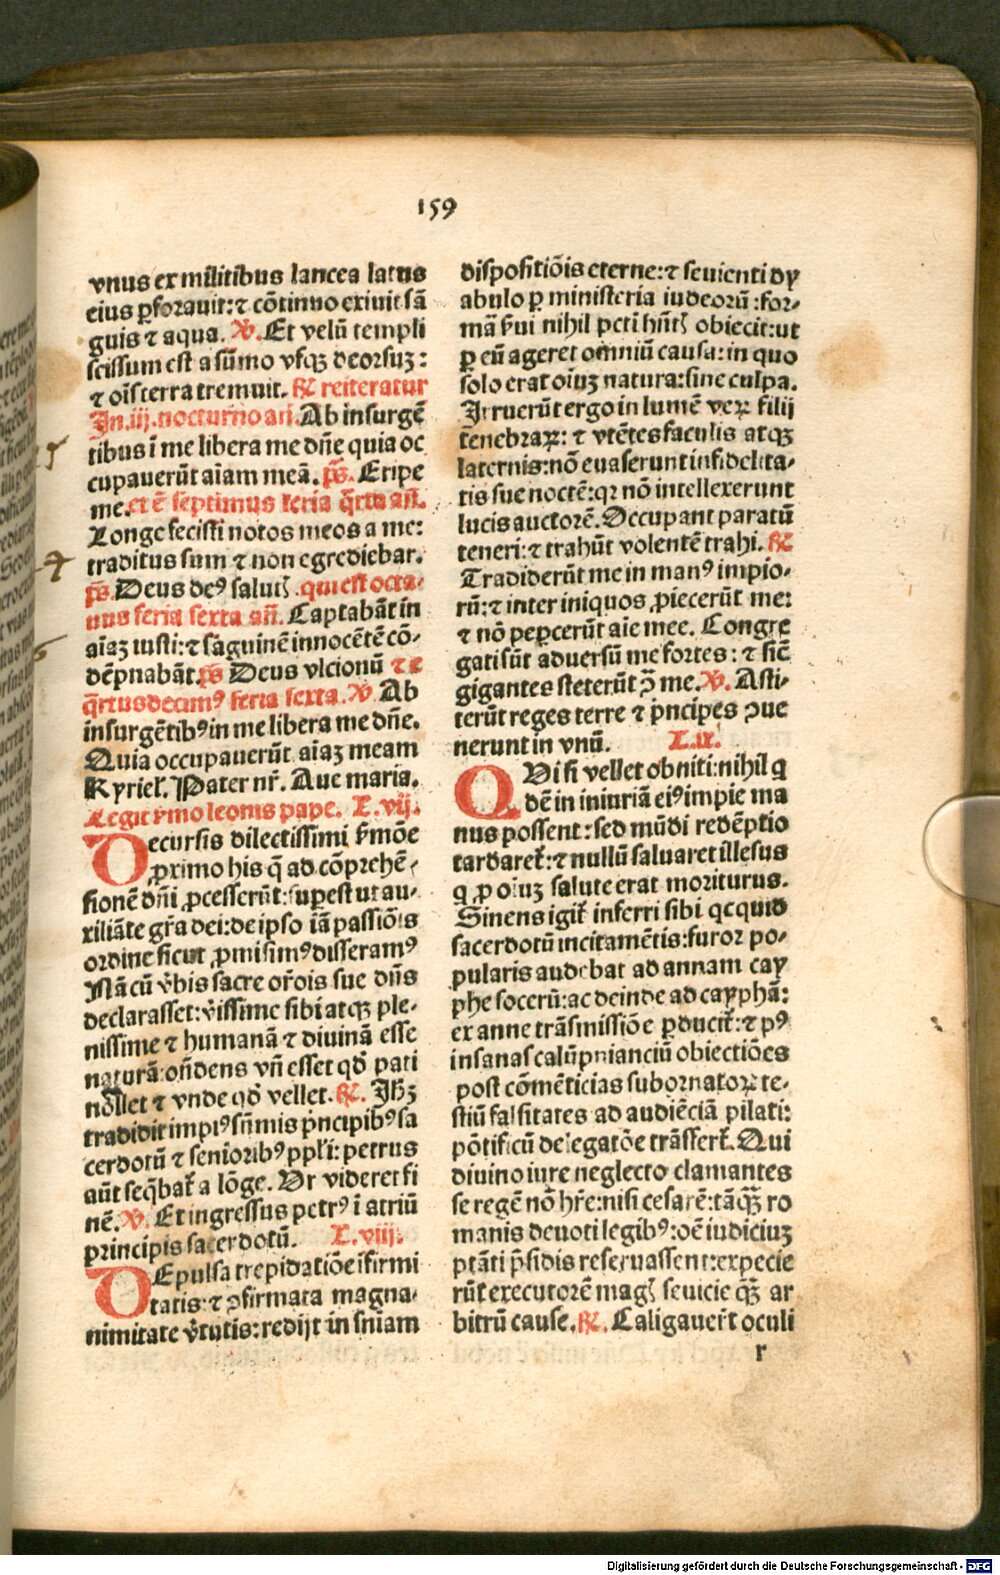 159
vnus ex militibus lancea latus
eius ꝑforauit: ⁊ cōtinuo exiuit sā
guis ⁊ aqua. ℣. Et velū templi
scissum est a sūmo vsqꝫ deorsuꝫ:
⁊ oīs terra tremuit. ℟ reiteratur
In .iij. nocturno añ. Ab insurgē
tibus ī me libera me dñe quia oc
cupauerūt aīam meā. p̄s. Eripe
me. et ē septimus feria q̄rta añ.
Longe fecisti notos meos a me:
traditus sum ⁊ non egrediebar.
p̄s. Deus deꝰ salutꝭ. qui est octa-
uus feria sexta añ. Captabāt in
aīaꝫ iusti: ⁊ sāguinē innocētē cō-
dēpnabāt. p̄s Deus vlcionū
q̄rtusdecimꝰ feria sexta. ℣. Ab
insurgētibꝰ in me libera me dñe.
Quia occupauerūt aīaꝫ meam
Kyriel. Pater nr̄. Aue maria.
Legit̄ ẜmo leonis pape. L. vij.
Decursis dilectissimi ẜmōe
ꝓximo his q̄ ad cōprehē-
sionē dñi ꝓcesserūt: suꝑest ut au-
xiliāte gr̄a dei: de ipso iā passiōis
ordine sicut ꝓmisimꝰ disseramꝰ
Nā cū v̄bis sacre or̄ois sue dñs
declarasset: v̄issime sibi atqꝫ ple-
nissime ⁊ humanā ⁊ diuinā esse
naturā: on̄dens vñ esset qd̄ pati
nollet ⁊ vnde qd̄ vellet. ℟. Ihꝫ
tradidit impiꝰ sūmis p̄ncipibꝰ sa
cerdotū ⁊ senioribꝰ ppl̄i: petrus
aūt seq̄bat̄ a lōge. Ut videret fi
nē. ℣. Et ingressus petrꝰ ī atriū
principis sacerdotū. L. viij.
DEpulsa trepidatiōe īfirmi
tatis: ⁊ ꝯfirmata magna-
nimitate v̄tutis: redijt in sn̄iam
dispositiōis eterne: ⁊ seuienti dy
abulo ꝑ ministeria iudeorū: for-
mā ẜui nihil pcti hn̄tꝭ obiecit: ut
ꝑ eū ageret omniū causa: in quo
solo erat oīuꝫ natura: sine culpa.
Irruerūt ergo in lumē veꝝ filij
tenebraꝝ: ⁊ vtētes faculis atqꝫ
laternis: nō euaserunt infidelita-
tis sue noctē: qꝛ nō intellexerunt
lucis auctorē. Occupant paratū
teneri: ⁊ trahūt volentē trahi. ℟
Tradiderūt me in manꝰ impio-
rū: ⁊ inter iniquos ꝓiecerūt me:
⁊ nō peꝑcerūt aīe mee. Congre
gati sūt aduersū me fortes: ⁊ sic̄
gigantes steterūt ꝯ̄ me. ℣. Asti-
terūt reges terre ⁊ p̄ncipes ꝯue
nerunt in vnū. L. ix.
QUi si vellet obniti: nihil q
dē in iniuriā eiꝰ impie ma
nus possent: sed mūdi redēptio
tardaret̄: ⁊ nullū saluaret illesus
q ꝑ oīuꝫ salute erat moriturus.
Sinens igit̄ inferri sibi qcquid
sacerdotū incitamētis: furor po-
pularis audebat ad annam cay
phe socerū: ac deinde ad cayphā:
ex anne trāsmissiōe ꝑducit̄: ⁊ pꝰ
insanas calūpnianciū obiectiōes
post cōmēticias subornatoꝝ te-
stiū falsitates ad audiēciā pilati:
pōtificū delegatōe trāsfert̄. Qui
diuino iure neglecto clamantes
se regē nō hr̄e: nisi cesarē: tāꝗ̄ ro
manis deuoti legibꝰ: oē iudiciuꝫ
ptāti p̄sidis reseruassent: expecie
rūt executorē magꝭ seuicie ꝗ̄ ar
bitrū cause. ℟. Caligauer̄t oculi
r
Digitalisierung gefördert durch die Deutsche Forschungsgemeinschaft - DFG